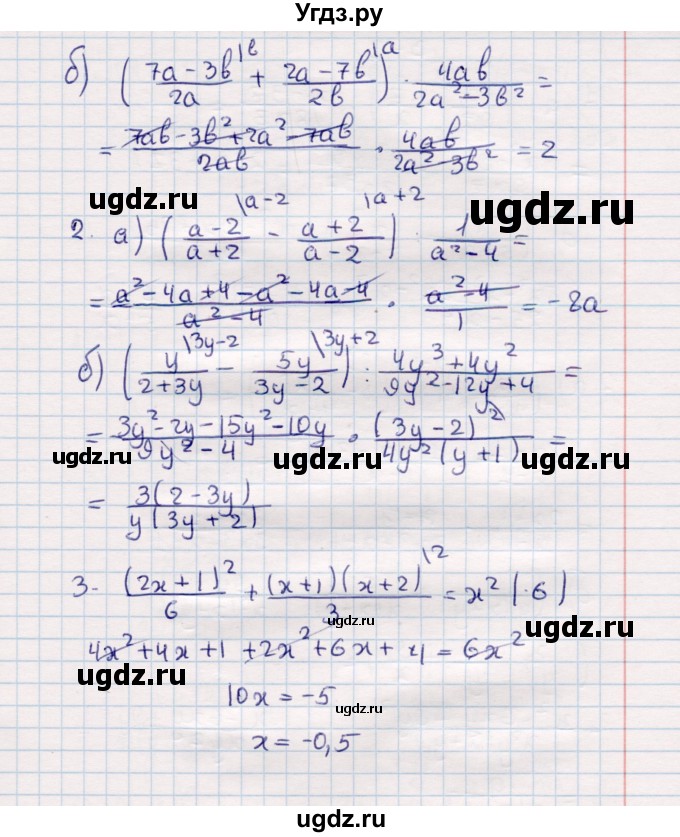 Угдз.ру
б) ((7a-3b)/2a \b + (2a-7b)/2b \a) · 4ab/(2a²-3b²) =
= (7ab-3b²+2a²-7ab)/2ab · 4ab/(2a²-3b²) = 2
ugdz.ru
ugdz.ru
2. a) ((a-2)/(a+2) \a-2 - (a+2)/(a-2) \a+2) : 1/(a²-4) =
= (a²-4a+4-a²-4a-4)/(a²-4) · (a²-4)/1 = -8a
б) (y/(2+3y) \3y-2 - 5y/(3y-2) \3y+2) : (4y³+4y²)/(9y²-12y+4) =
ugdz.ru
= (3y²-2y-15y²-10y)/(9y²-4) · (3y-2)²/(4y²(y+1)) =
ugdz.ru
ugdz.ru
ugdz.ru
= 3(2-3y)/(y(3y+2))
3- (2x+1)²/6 + (x+1)(x+2)/3 \2 = x² |·6)
ugdz.ru
ugdz.ru
4x²+4x+1+2x²+6x+4=6x²
10x = -5
ugdz.ru
ugdz.ru
x = -0,5
ugdz.ru